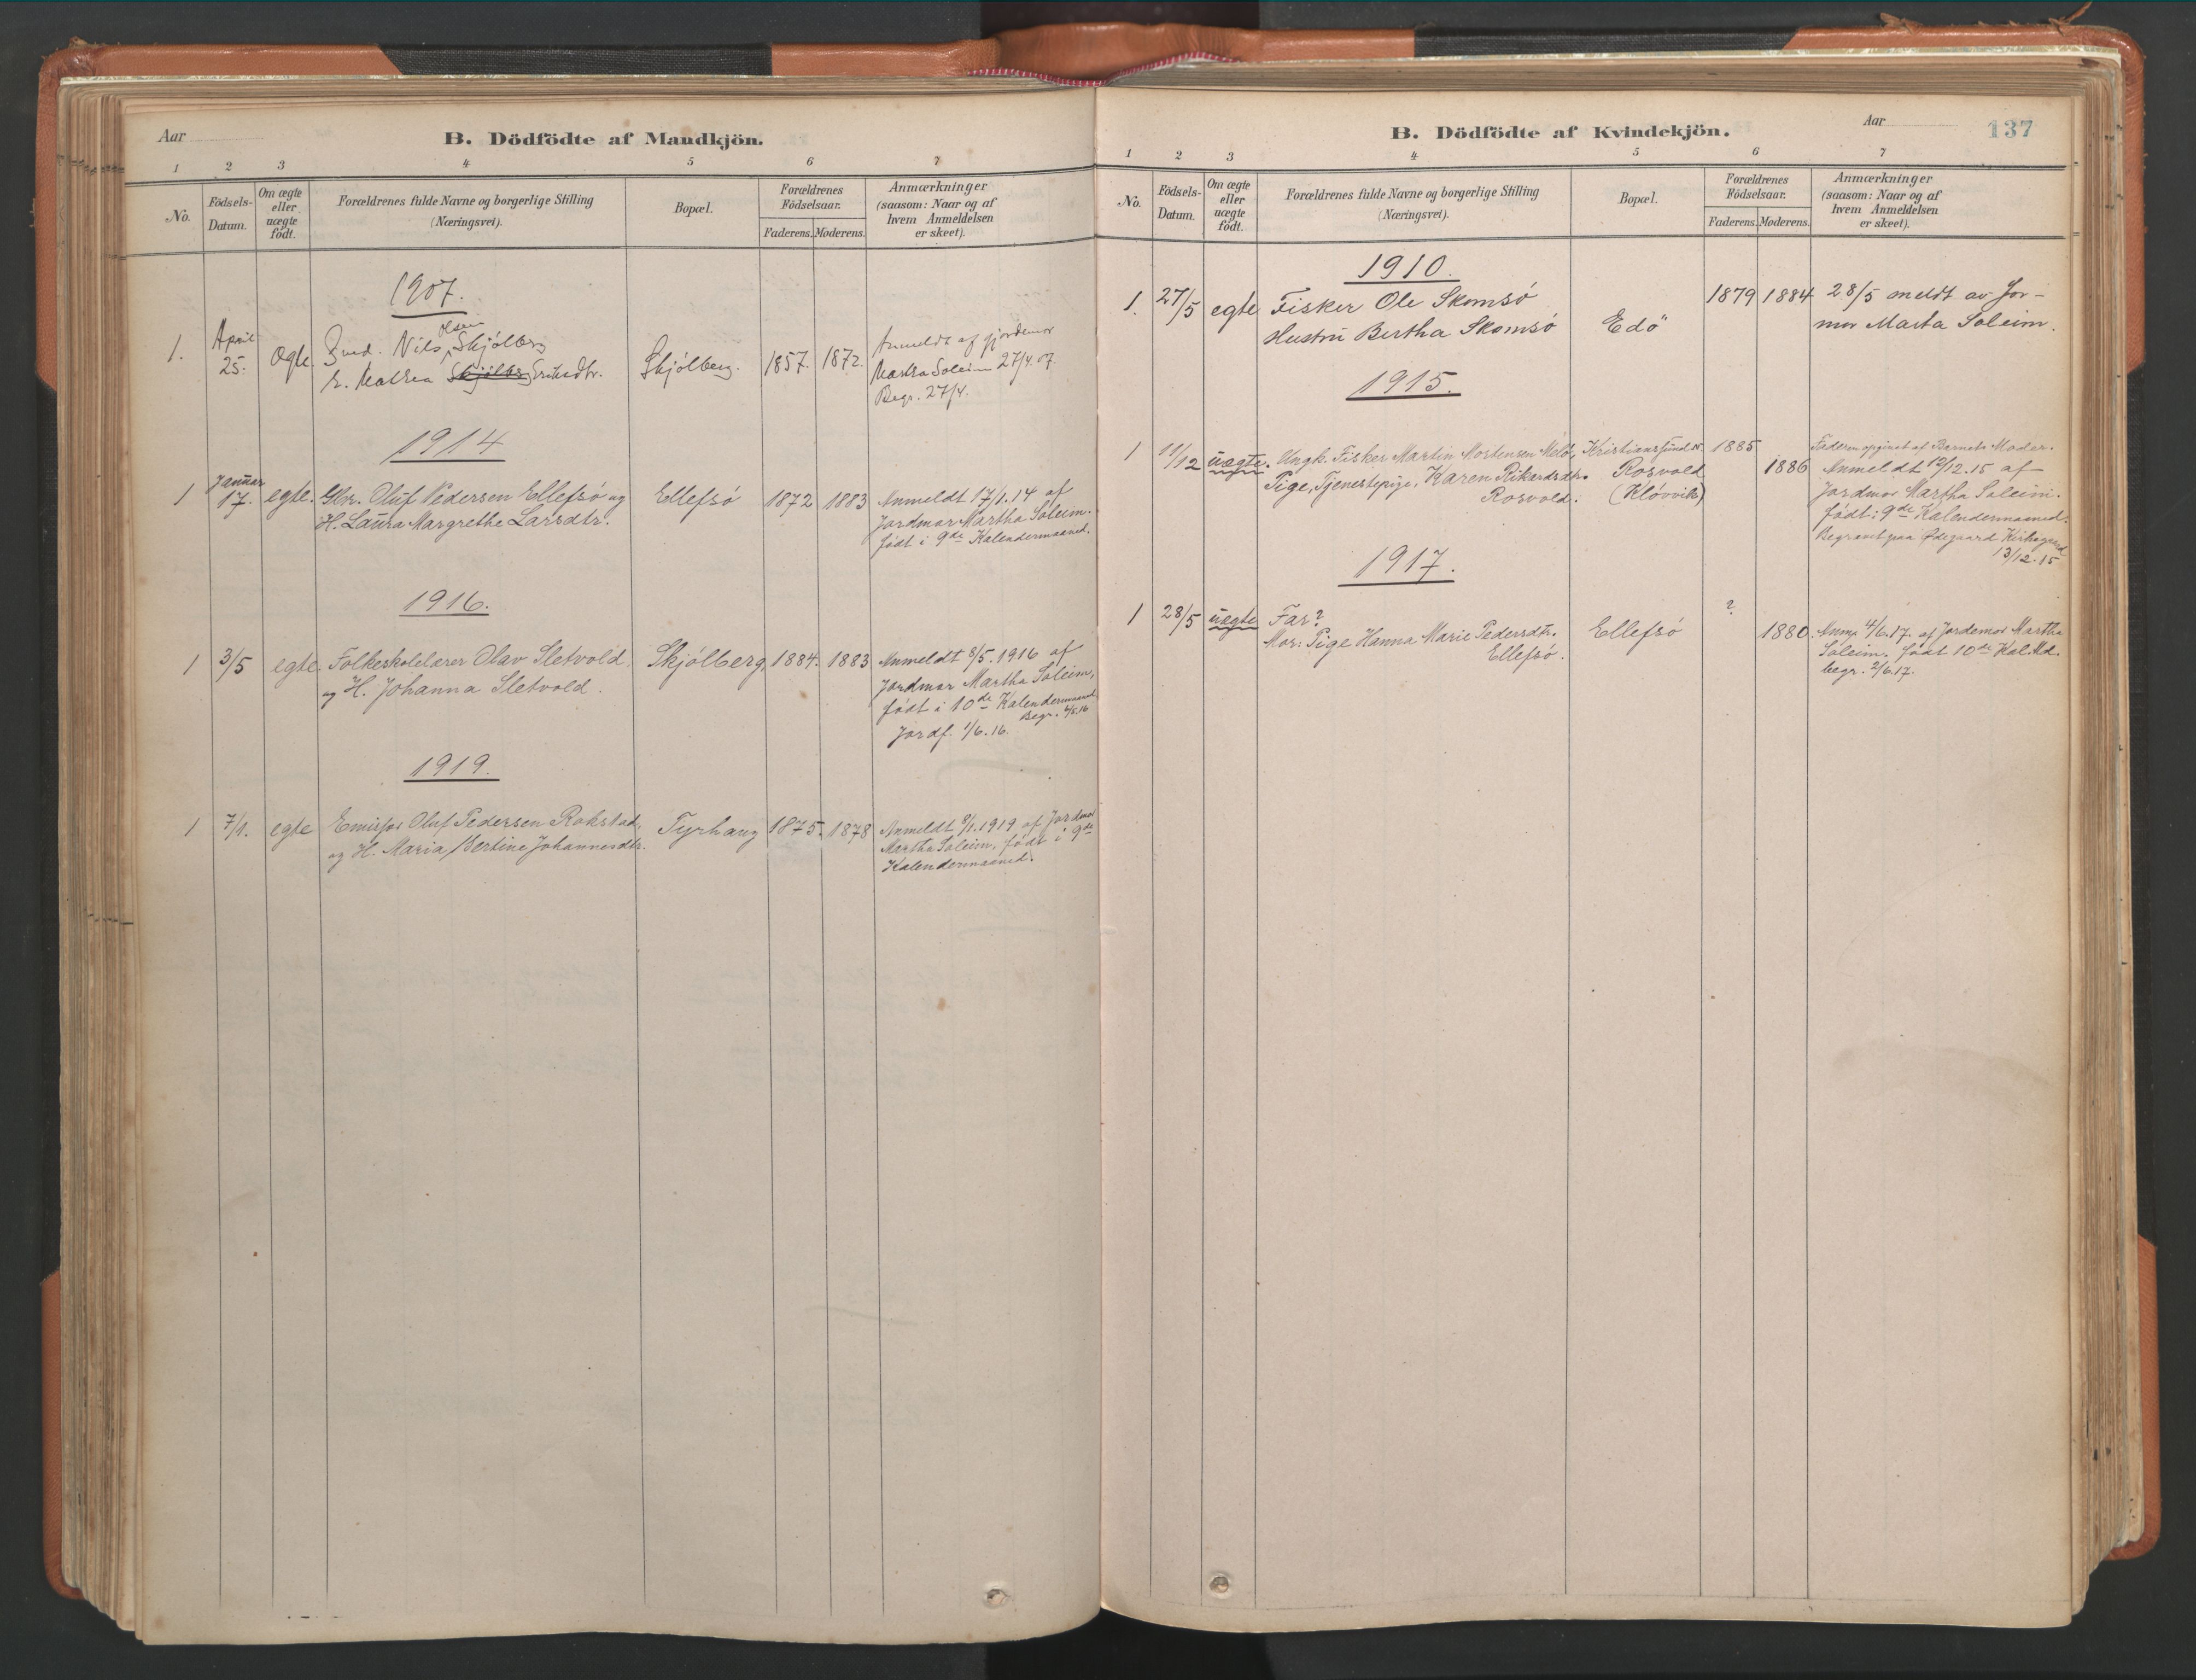 Aar
B. Dödfödte af Mandkjön.
1 2 3 4 5 6 7
No.
Födsels-
Datum.
Om ægte
eller
uægte
födt.
Forældrenes fulde Navne og borgerlige Stilling
(Næringsvei).
Bopæl.
Forældrenes
Födselsaar.
Faderens. Moderens.
Anmærkninger
(saasom: Naar og af
hvem Anmeldelsen
er skeet).
1907.
1. April
25. Ægte. Nils Olsen Skjölberg
Skjölberg Eriksdtr.
Skjölberg. 1857. 1872.
Anmeldt af gjordemor
Martha Soleim 27/4.07.
Begr. 27/4.
1914
1 Januar
17. egte. Gbr. Oluf Pedersen Ellefsö og
H. Laura Margrethe Larsdtr.
Ellefsö 1872 1883
Anmeldt 17/1.14 af
Jordmor Martha Soleim.
födt i 9de Kalendermaaned.
1916.
1 3/5 egte Folkeskolelærer Olav Sletvold
og H. Johanna Sletvold.
Skjölberg 1884. 1883
Anmeldt 8/5.1916 af
Jordmor Martha Soleim,
födt i 10de Kalendermaaned
Begr. 6/5.16
Jordf. 1/6.16.
1919.
1 7/1. egte Emisær Oluf Pedersen Rokstad,
og H. Maria Bertine Johannesdtr.
Tyrhaug 1875. 1878
Anmeldt 8/1.1919 af Jordmor
Martha Soleim, födt i 9de
Kalendermaaned.
B. Dödfödte af Kvindekjön.
Aar
137
1 2 3 4 5 6 7
No.
Födsels-
Datum.
Om ægte
eller
uægte
födt.
Forældrenes fulde Navne og borgerlige Stilling
(Næringsvei).
Bopæl.
Forældrenes
Födselsaar.
Faderens. Moderens.
Anmærkninger
(saasom: Naar og af
hvem Anmeldelsen
er skeet).
1910.
1. 27/5 egte Fisker Ole Skomsö
Hustru Bertha Skomsö
Edö 1879 1884
28/5 meldt av Jor-
mor Marta Soleim.
1915.
1 11/12 uægte. Ungk. Fisker Martin Mortensen Melö,
Pige, Tjenestepige, Karen Rikardsdtr.
Rosvold.
Kristianssund N.
Rosvold
(Klövvik)
1885
1886
Faderen opgivet af Barnets Moder.
Anmeldt 12/12.15 af
Jordmor Martha Soleim.
födt i 9de Kalendermaaned.
Begravet paa Ödegaard Kirkegaard
13/12.15
1917.
1 28/5 uægte Far?
Mor: Pige Hanna Marie Pedersdtr.
Ellefsö.
Ellefsö
?
1880.
Anm. 4/6.17. af Jordemor Martha
Soleim. födt 10de Kal.Md.
begr. 2/6.17.